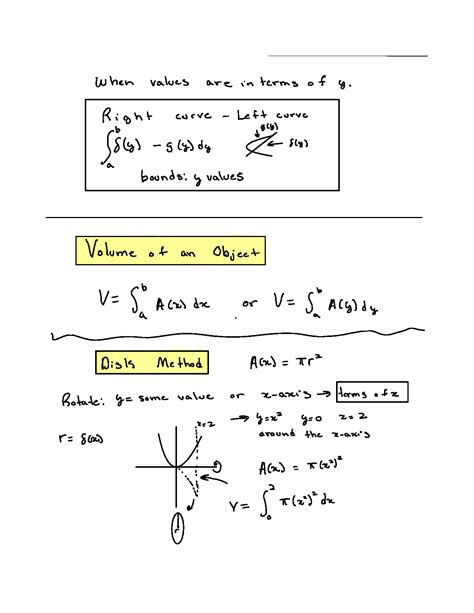 When values are in terms of y.
Right curve - Left curve
∫_a^b f(y) - g(y) dy
g(y)
f(y)
bounds: y values
Volume of an Object
V = ∫_a^b A(x) dx or V = ∫_a^b A(y) dy
Disk Method A(x) = πr²
Rotate: y = some value or x-axis → terms of x
→ y=x² y=0 x=2
around the x-axis
r = f(x)
x=2
A(x) = π(x²)²
V = ∫_0^2 π(x²)² dx
r